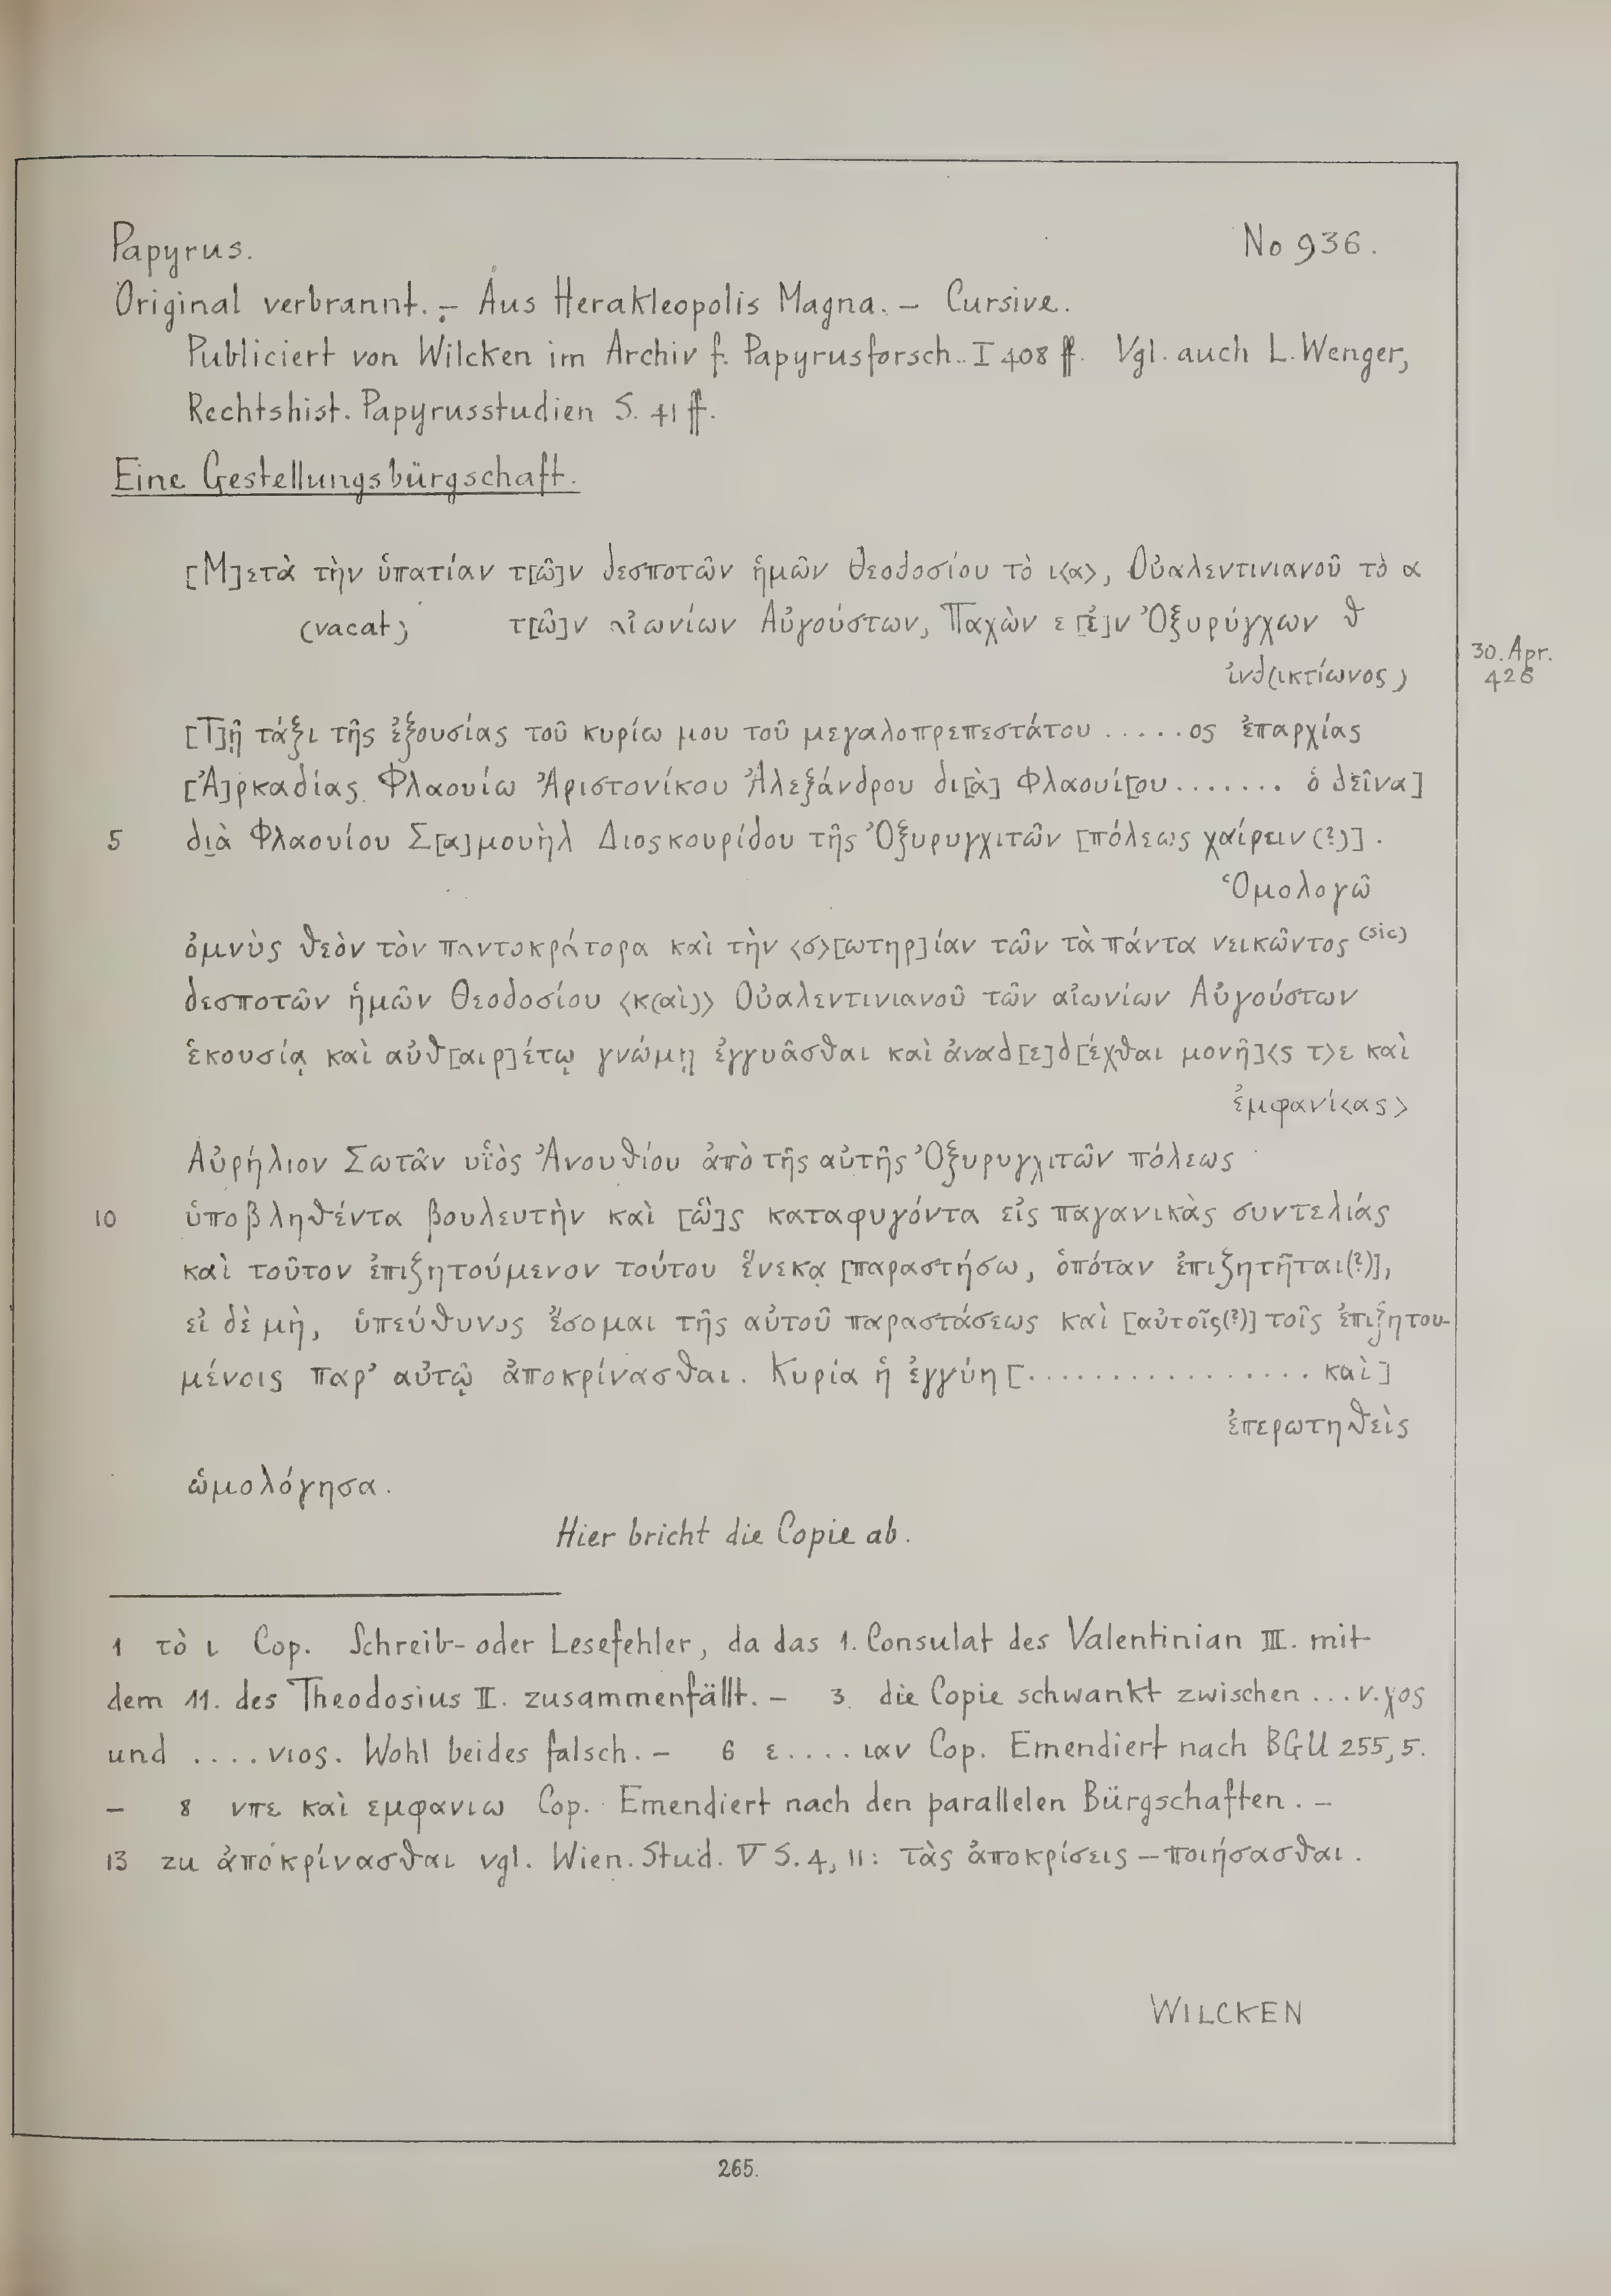 Papyrus. No 936.
Original verbrannt. – Aus Herakleopolis Magna. – Cursive.
Publiciert von Wilcken im Archiv f. Papyrusforsch. I 408 ff. Vgl. auch L. Wenger,
Rechtshist. Papyrusstudien S. 41 ff.
Eine Gestellungsbürgschaft.
[Μ]ετὰ τὴν ὑπατίαν τ[ῶ]ν δεσποτῶν ἡμῶν Θεοδοσίου τὸ ι<α>, Οὐαλεντινιανοῦ τὸ α
(vacat) τ[ῶ]ν αἰωνίων Αὐγούστων, Παχὼν ε [ἐ]ν Ὀξυρύγχων θ
ἰνδ(ικτίωνος)
30. Apr.
426
[Τ]ῇ τάξι τῆς ἐξουσίας τοῦ κυρίω μου τοῦ μεγαλοπρεπεστάτου .....ος ἐπαρχίας
[Ἀ]ρκαδίας Φλαουίω Ἀριστονίκου Ἀλεξάνδρου δι[ὰ] Φλαουί[ου ....... ὁ δεῖνα]
5 διὰ Φλαουίου Σ[α]μουὴλ Διοσκουρίδου τῆς Ὀξυρυγχιτῶν [πόλεως χαίρειν(?)].
Ὁμολογῶ
ὀμνὺς θεὸν τὸν παντοκράτορα καὶ τὴν <σ>[ωτηρ]ίαν τῶν τὰ πάντα νεικῶντος (sic)
δεσποτῶν ἡμῶν Θεοδοσίου <κ(αὶ)> Οὐαλεντινιανοῦ τῶν αἰωνίων Αὐγούστων
ἑκουσίᾳ καὶ αὐθ[αιρ]έτῳ γνώμῃ ἐγγυᾶσθαι καὶ ἀναδ[ε]δ[έχθαι μονῆ]<ς τ>ε καὶ
ἐμφανί<ας>
Αὐρήλιον Σωτᾶν υἱὸς Ἀνουθίου ἀπὸ τῆς αὐτῆς Ὀξυρυγχιτῶν πόλεως
10 ὑποβληθέντα βουλευτὴν καὶ [ὣ]ς καταφυγόντα εἰς παγανικὰς συντελιάς
καὶ τοῦτον ἐπιζητούμενον τούτου ἕνεκα [παραστήσω, ὁπόταν ἐπιζητῆται(?)],
εἰ δὲ μὴ, ὑπεύθυνος ἔσομαι τῆς αὐτοῦ παραστάσεως καὶ [αὐτοῖς(?)] τοῖς ἐπιζητου-
μένοις παρ’ αὐτῷ ἀποκρίνασθαι. Κυρία ἡ ἐγγύη [................. καὶ]
ἐπερωτηθεὶς
ὡμολόγησα.
Hier bricht die Copie ab.
1 τὸ ι Cop. Schreib- oder Lesefehler, da das 1. Consulat des Valentinian III. mit
dem 11. des Theodosius II. zusammenfällt. – 3 die Copie schwankt zwischen ...ν.χος
und ....νιος. Wohl beides falsch. – 6 ε....ιαν Cop. Emendiert nach BGU 255,5.
– 8 νπε καὶ εμφανιω Cop. Emendiert nach den parallelen Bürgschaften. –
13 zu ἀποκρίνασθαι vgl. Wien. Stud. V S. 4, 11: τὰς ἀποκρίσεις – ποιήσασθαι.
WILCKEN
265.